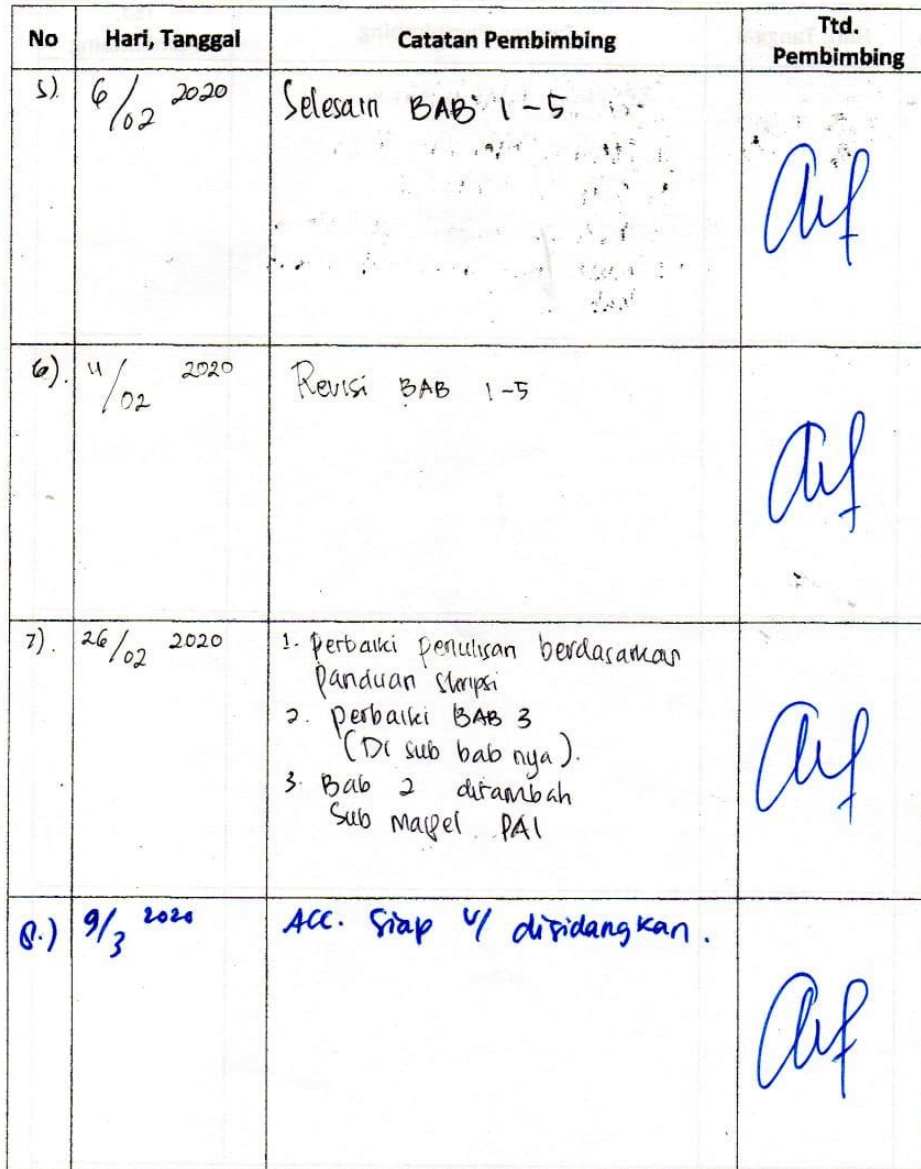 No Hari, Tanggal Catatan Pembimbing Ttd. Pembimbing
5). 6/02 2020 Selesain BAB 1-5
6). 11/02 2020 Revisi BAB 1-5
7). 26/02 2020 1. Perbaiki penulisan berdasarkan
Panduan skripsi
2. perbaiki BAB 3
(Di sub bab nya).
3. Bab 2 ditambah
Sub mapel PAI
8.) 9/3 2020 ACC. Siap u/ disidangkan.